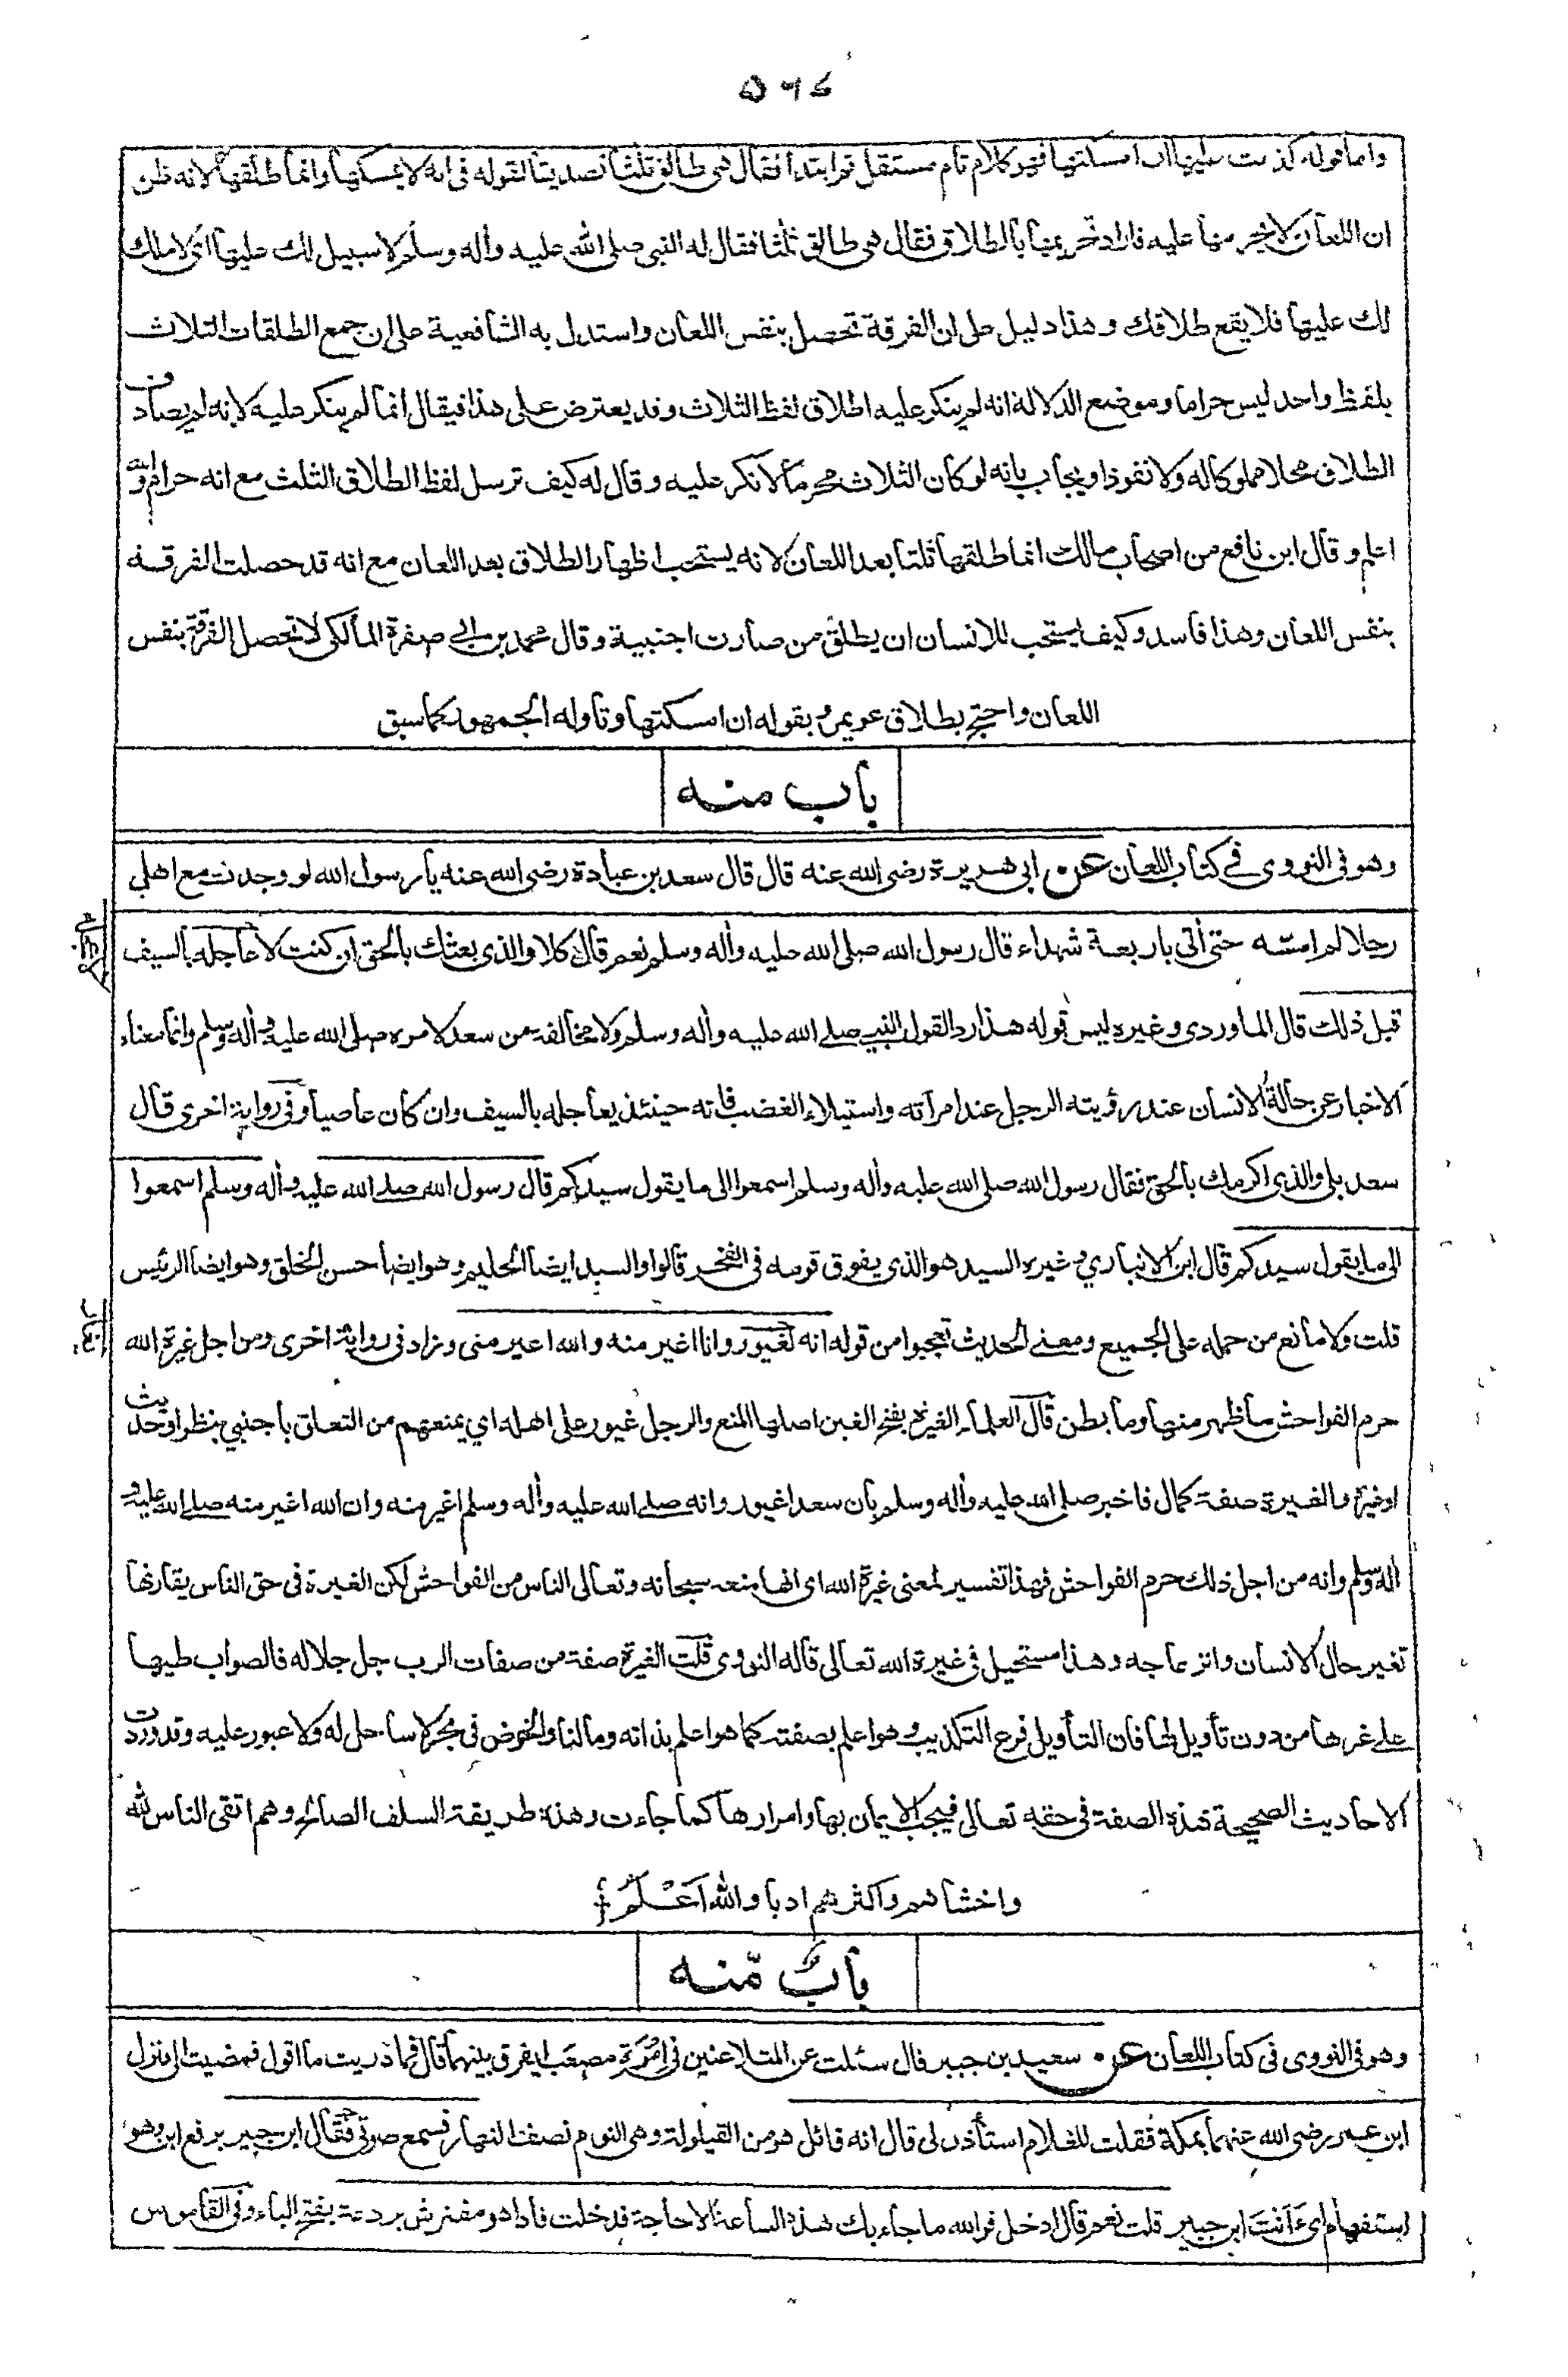 ٥٦٤
واما قوله كذبت عليها ان امسكتها فهو كلام تام مستقل ثم ابتدأ فقال هى طالق ثلثا تصديقا لقوله فى انه لا يمسكها وانما طلقها لانه ظن
ان اللعان لا يحرمها عليه فاراد تحريمها بالطلاق فقال هى طالق ثلثا فقال له النبى صلى الله عليه واله وسلم لا سبيل لك عليها اى لا ملك
لك عليها فلا يقع طلاقك وهذا دليل على ان الفرقة تحصل بنفس اللعان واستدل به الشافعية على ان جمع الطلقات الثلاث
بلفظ واحد ليس حراما وموضع الدلالة انه لم ينكر عليه اطلاق لفظ الثلاث وقد يعترض على هذا فيقال انما لم ينكر عليه لانه لم يصادف
الطلاق محلا مملوكا له ولا نفوذا ويجاب بانه لو كان الثلاث محرما لانكر عليه وقال له كيف ترسل لفظ الطلاق الثلث مع انه حرام والله
اعلم وقال ابن نافع من اصحاب مالك انما طلقها ثلثا بعد اللعان لانه يستحب اظهار الطلاق بعد اللعان مع انه قد حصلت الفرقة
بنفس اللعان وهذا فاسد وكيف يستحب للانسان ان يطلق من صارت اجنبية وقال محمد بن ابي صفرة المالكى لا تحصل الفرقة بنفس
اللعان واحتج بطلاق عويمر و بقوله ان امسكتها وتاوله الجمهور كما سبق
باب منه
وهو فى النووى في كتاب اللعان عن ابى هريرة رضى الله عنه قال قال سعد بن عبادة رضى الله عنه يا رسول الله لو وجدت مع اهلى
رجلا لم امسّه حتى اتى باربعة شهداء قال رسول الله صلى الله عليه واله وسلم نعم قال كلا والذى بعثك بالحق ان كنت لاعاجله بالسيف
قبل ذلك قال الماوردى وغيره ليس قوله هذا ردا لقول النبي صلى الله عليه واله وسلم ولا مخالفة من سعد لامره صلى الله عليه واله وسلم وانما معناه
الاخبار عن حالة الانسان عند رؤيته الرجل عند امرأته واستيلاء الغضب فانه حينئذ يعاجله بالسيف وان كان عاصيا وفى رواية اخرى قال
سعد بلى والذى اكرمك بالحق فقال رسول الله صلى الله عليه واله وسلم اسمعوا الى ما يقول سيدكم قال رسول الله صلى الله عليه واله وسلم اسمعوا
الى ما يقول سيدكم قال ابن الانباري وغيره السيد هو الذى يفوق قومه فى الفخر قالوا والسيد ايضا الحليم وهو ايضا حسن الخلق وهو ايضا الرئيس
قلت ولا مانع من حمله على الجميع ومعنى الحديث تعجبوا من قوله انه لغيور وانا اغير منه والله اغير منى وزاد فى رواية اخرى ومن اجل غيرة الله
حرم الفواحش ما ظهر منها وما بطن قال العلماء الغيرة بفتح الغين اصلها المنع والرجل غيور على اهله اي يمنعهم من التعلق باجنبي بنظر او حديث
او غيره والغيرة صفة كمال فاخبر صلى الله عليه واله وسلم بان سعدا غيور وانه صلى الله عليه واله وسلم اغير منه وان الله اغير منه صلى الله عليه و
اله وسلم وانه من اجل ذلك حرم الفواحش فهذا تفسير لمعنى غيرة الله اى انها منعه سبحانه وتعالى الناس من الفواحش لكن الغيرة فى حق الناس يقارنها
تغير حال الانسان وانزعاجه وهذا مستحيل فى غيرة الله تعالى قاله النووى قلت الغيرة صفة من صفات الرب جل جلاله فالصواب طيها
على غرها من دون تأويل لها فان التأويل فرع التكذيب وهو اعلم بصفته كما هو اعلم بذاته وما لنا والخوض فى بحر لا ساحل له ولا عبور عليه وقد وردت
الاحاديث الصحيحة بهذه الصفة فى حقه تعالى فيجب الايمان بها وامرارها كما جاءت وهذه طريقة السلف الصالح وهم اتقى الناس لله
واخشاهم واكثرهم ادبا والله اَعْلَمُ
بابٌ مّنه
وهو فى النووى فى كتاب اللعان عن سعيد بن جبير قال سئلت عن المتلاعنين فى اِمْرَةِ مصعب ايفرق بينهما قال فما دريت ما اقول فمضيت الى منزل
ابن عمر رضى الله عنهما بمكة فقلت للغلام استأذن لى قال انه قائل هو من القيلولة وهى النوم نصف النهار فسمع صوتى فقال ابن جبير برفع ابن وهو
استفهام اى ءَاَنتَ ابن جبير قلت نعم قال ادخل فوالله ما جاء بك هذه الساعة الا حاجة فدخلت فاذا هو مفترش بردعة بفتح الباء وفى القاموس